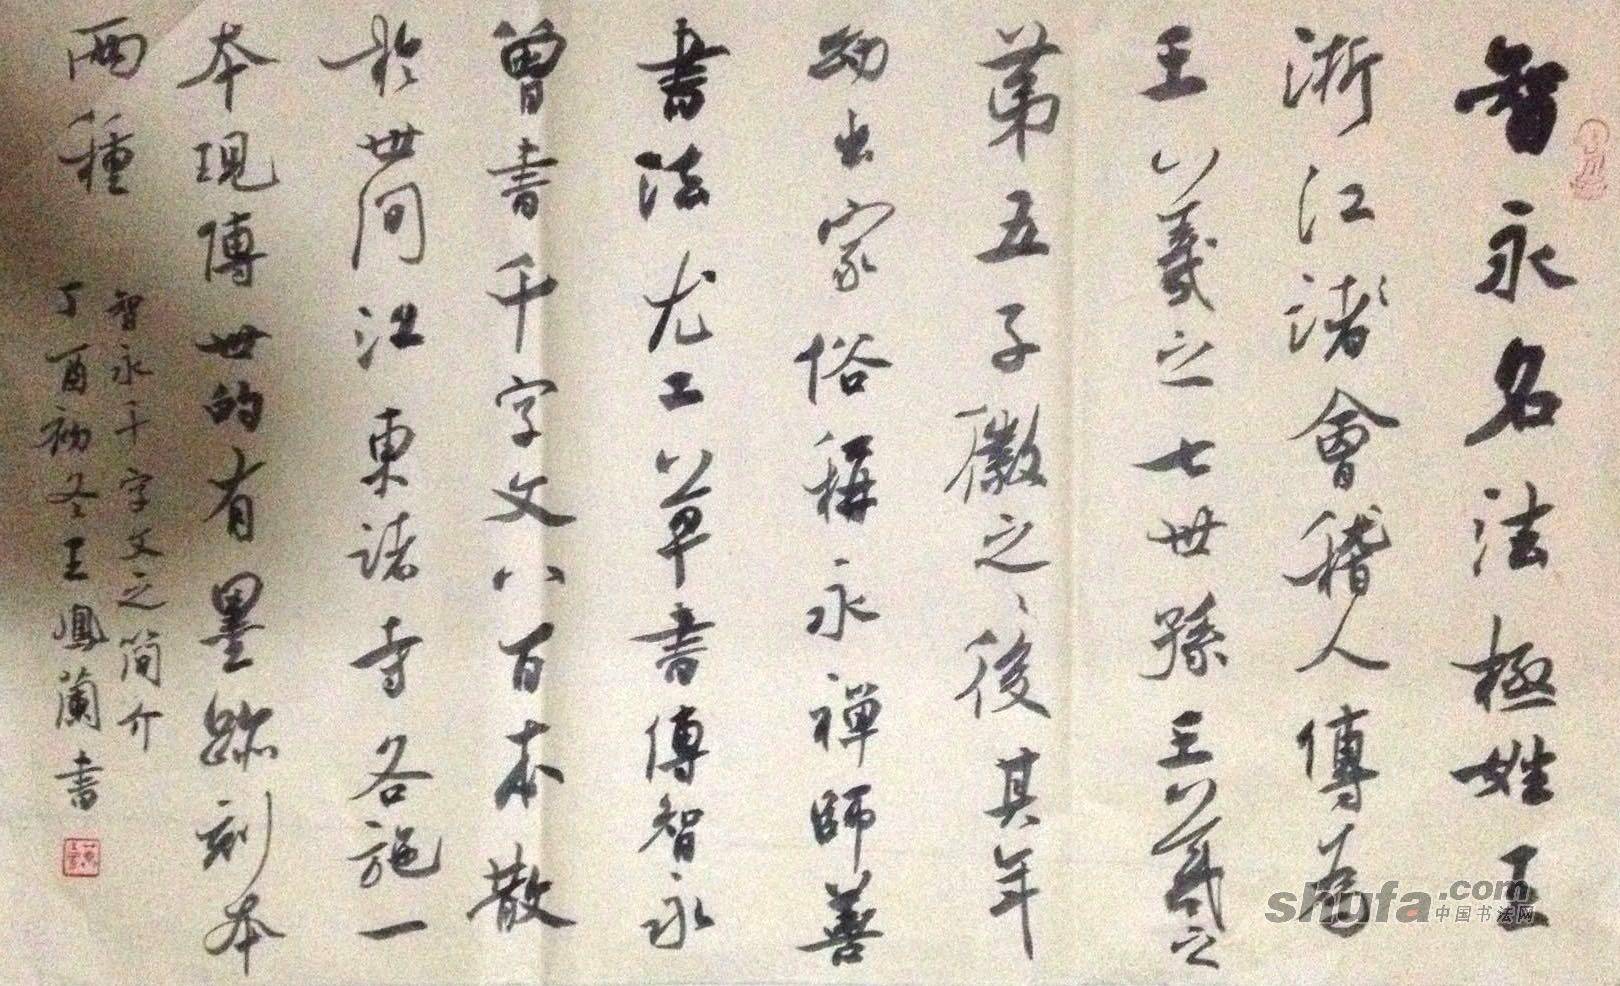 智永名法極姓王
浙江諸會稽人傳為
王羲之七世孫王羲之
第五子徽之之後其年
幼出家俗稱永禪師善
書法尤工草書傳智永
曾書千字文八百本散
於世間江東諸寺各施一
本現傳世的有墨跡刻本
兩種
智永千字文之簡介
丁酉初冬王鳳蘭書
shufa.com
中国书法网